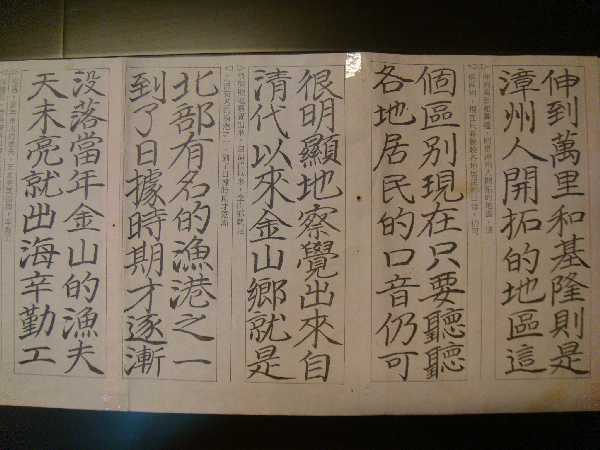 伸到萬里和基隆則是
漳州人開拓的地區這
個區別現在只要聽聽
各地居民的口音仍可
很明顯地察覺出來自
清代以來金山鄉就是
北部有名的漁港之一
到了日據時期才逐漸
没落當年金山的漁夫
天未亮就出海辛勤工